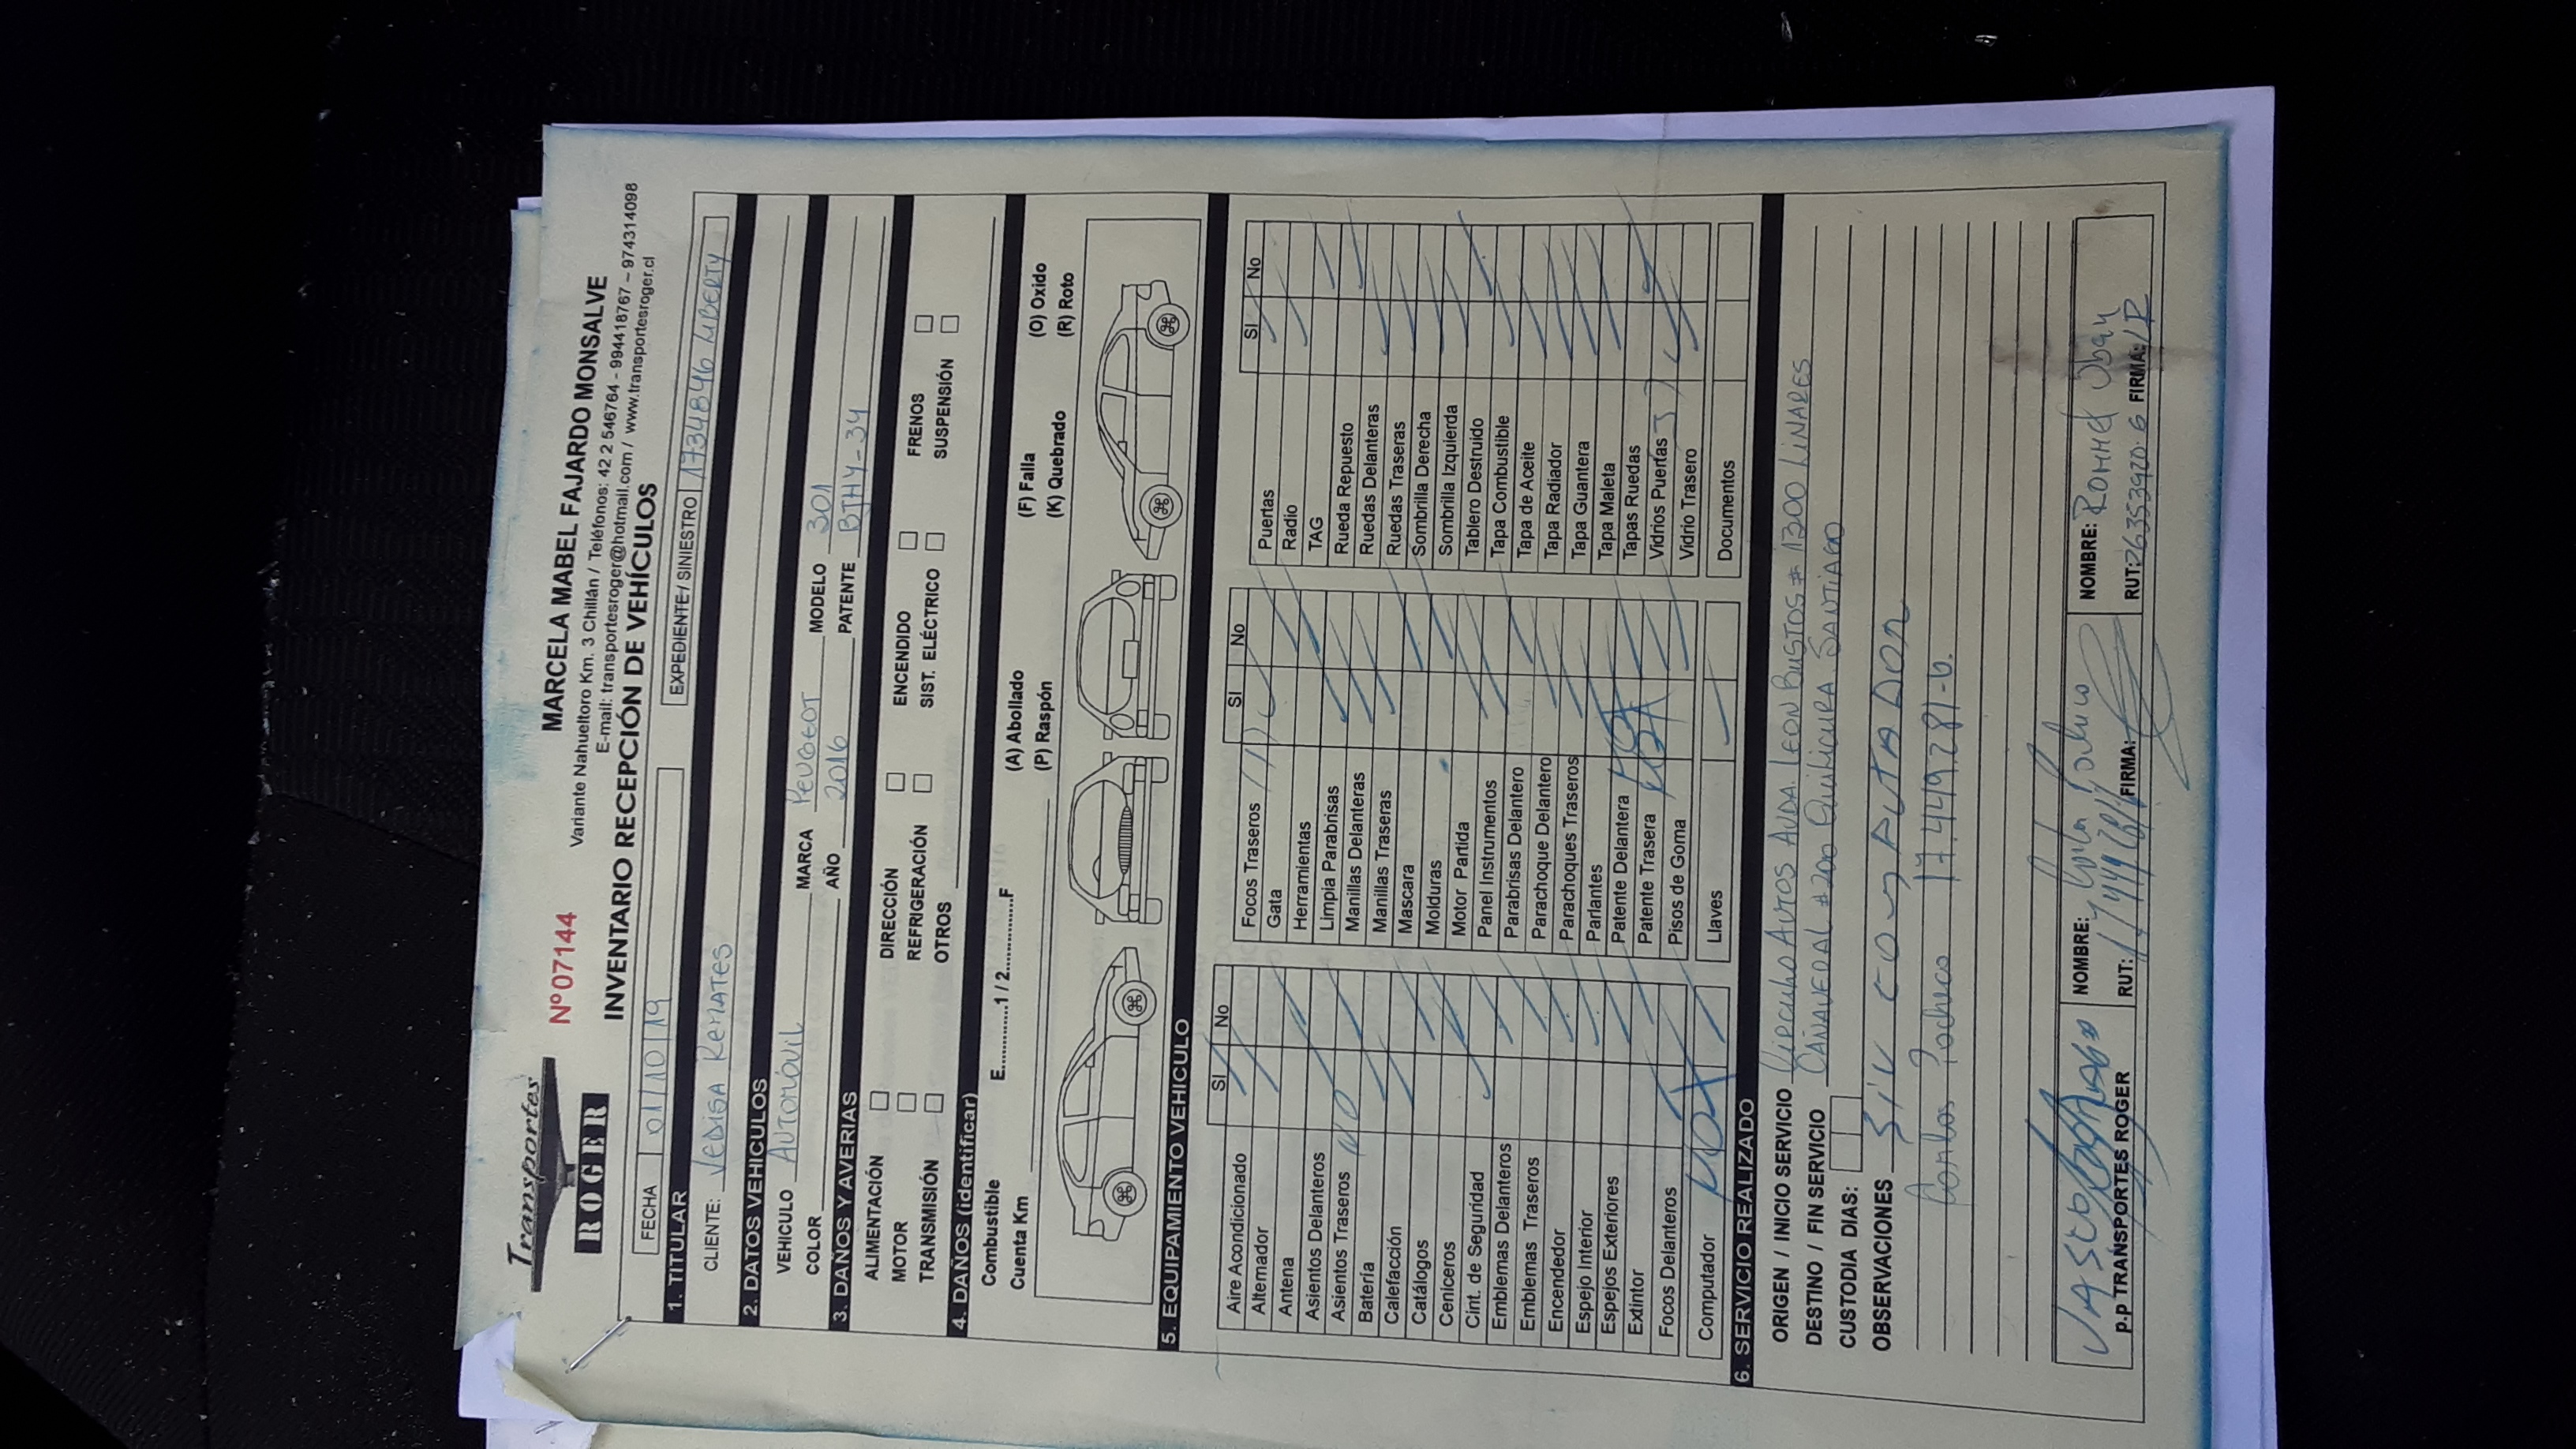 Transportes
ROGER
Nº 07144
MARCELA MABEL FAJARDO MONSALVE
Variante Nahueltoro Km. 3 Chillán / Teléfonos: 42 2 546764 - 994418767 – 974314098
E-mail: transportesroger@hotmail.com / www.transportesroger.cl
INVENTARIO RECEPCIÓN DE VEHÍCULOS
FECHA 01/10/19
EXPEDIENTE / SINIESTRO 17348496 LIBERTY
1. TITULAR
CLIENTE: VEDISA REMATES
2. DATOS VEHICULOS
VEHICULO AUTOMÓVIL MARCA PEUGEOT MODELO 301
COLOR AÑO 2016 PATENTE
3. DAÑOS Y AVERIAS
ALIMENTACIÓN DIRECCIÓN ENCENDIDO FRENOS
MOTOR REFRIGERACIÓN SIST. ELÉCTRICO SUSPENSIÓN
TRANSMISIÓN OTROS
4. DAÑOS (identificar)
Combustible E............1 / 2............F (A) Abollado (F) Falla (O) Oxido
Cuenta Km (P) Raspón (K) Quebrado (R) Roto
5. EQUIPAMIENTO VEHICULO
SI No
Aire Acondicionado
Alternador
Antena
Asientos Delanteros
Asientos Traseros NO
Batería
Calefacción
Catálogos
Ceniceros
Cint. de Seguridad
Emblemas Delanteros
Emblemas Traseros
Encendedor
Espejo Interior
Espejos Exteriores
Extintor
Focos Delanteros
Computador NO
SI No
Focos Traseros
Gata
Herramientas
Limpia Parabrisas
Manillas Delanteras
Manillas Traseras
Mascara
Molduras
Motor Partida
Panel Instrumentos
Parabrisas Delantero
Parachoque Delantero
Parachoques Traseros
Parlantes
Patente Delantera
Patente Trasera
Pisos de Goma
Llaves
SI No
Puertas
Radio
TAG
Rueda Repuesto
Ruedas Delanteras
Ruedas Traseras
Sombrilla Derecha
Sombrilla Izquierda
Tablero Destruido
Tapa Combustible
Tapa de Aceite
Tapa Radiador
Tapa Guantera
Tapa Maleta
Tapas Ruedas
Vidrios Puertas
Vidrio Trasero
Documentos
6. SERVICIO REALIZADO
ORIGEN / INICIO SERVICIO AUTOS AVDA. LEON BUSTOS # 1300 LINARES
DESTINO / FIN SERVICIO CAÑAVERAL #200 QUILICURA SANTIAGO
CUSTODIA DIAS:
OBSERVACIONES SIN COMPUTADOR
17.449.281-
p.p TRANSPORTES ROGER
NOMBRE:
RUT: FIRMA:
NOMBRE: ROMMEL
RUT: 26353920-6 FIRMA: